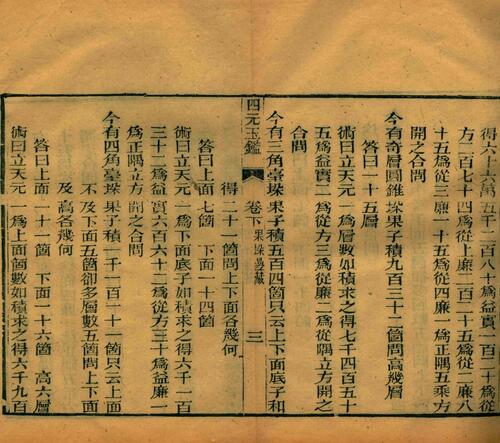 得六十六萬五千二百八十爲益實一百二十爲從
方二百七十四爲從上廉二百二十五爲從二廉八
十五爲從三廉一十五爲從四廉一爲正隅五乘方
開之合問
今有奇層圓錐垜果子積九百三十二箇問高幾層
答曰一十五層
術曰立天元一爲層數如積求之得七千四百五十
五爲益實二爲從方三爲從廉二爲從隅立方開之
合問
今有三角臺垜果子積五百四箇只云上下面底子和
四元玉鑑 卷下 果垜疊藏 三
得二十一箇問上下面各幾何
答曰上面七箇 下面一十四箇
術曰立天元一爲下面底子如積求之得六千一百
三十二爲益實六百六十二爲從方三十爲益廉一
爲正隅立方開之合問
今有四角臺垜果子積一千一百一十一箇只云上面
不及下面五箇卻多層數五箇問上下面
及高各幾何
答曰上面一十一箇 下面一十六箇 高六層
術曰立天元一爲上面箇數如積求之得六千九百